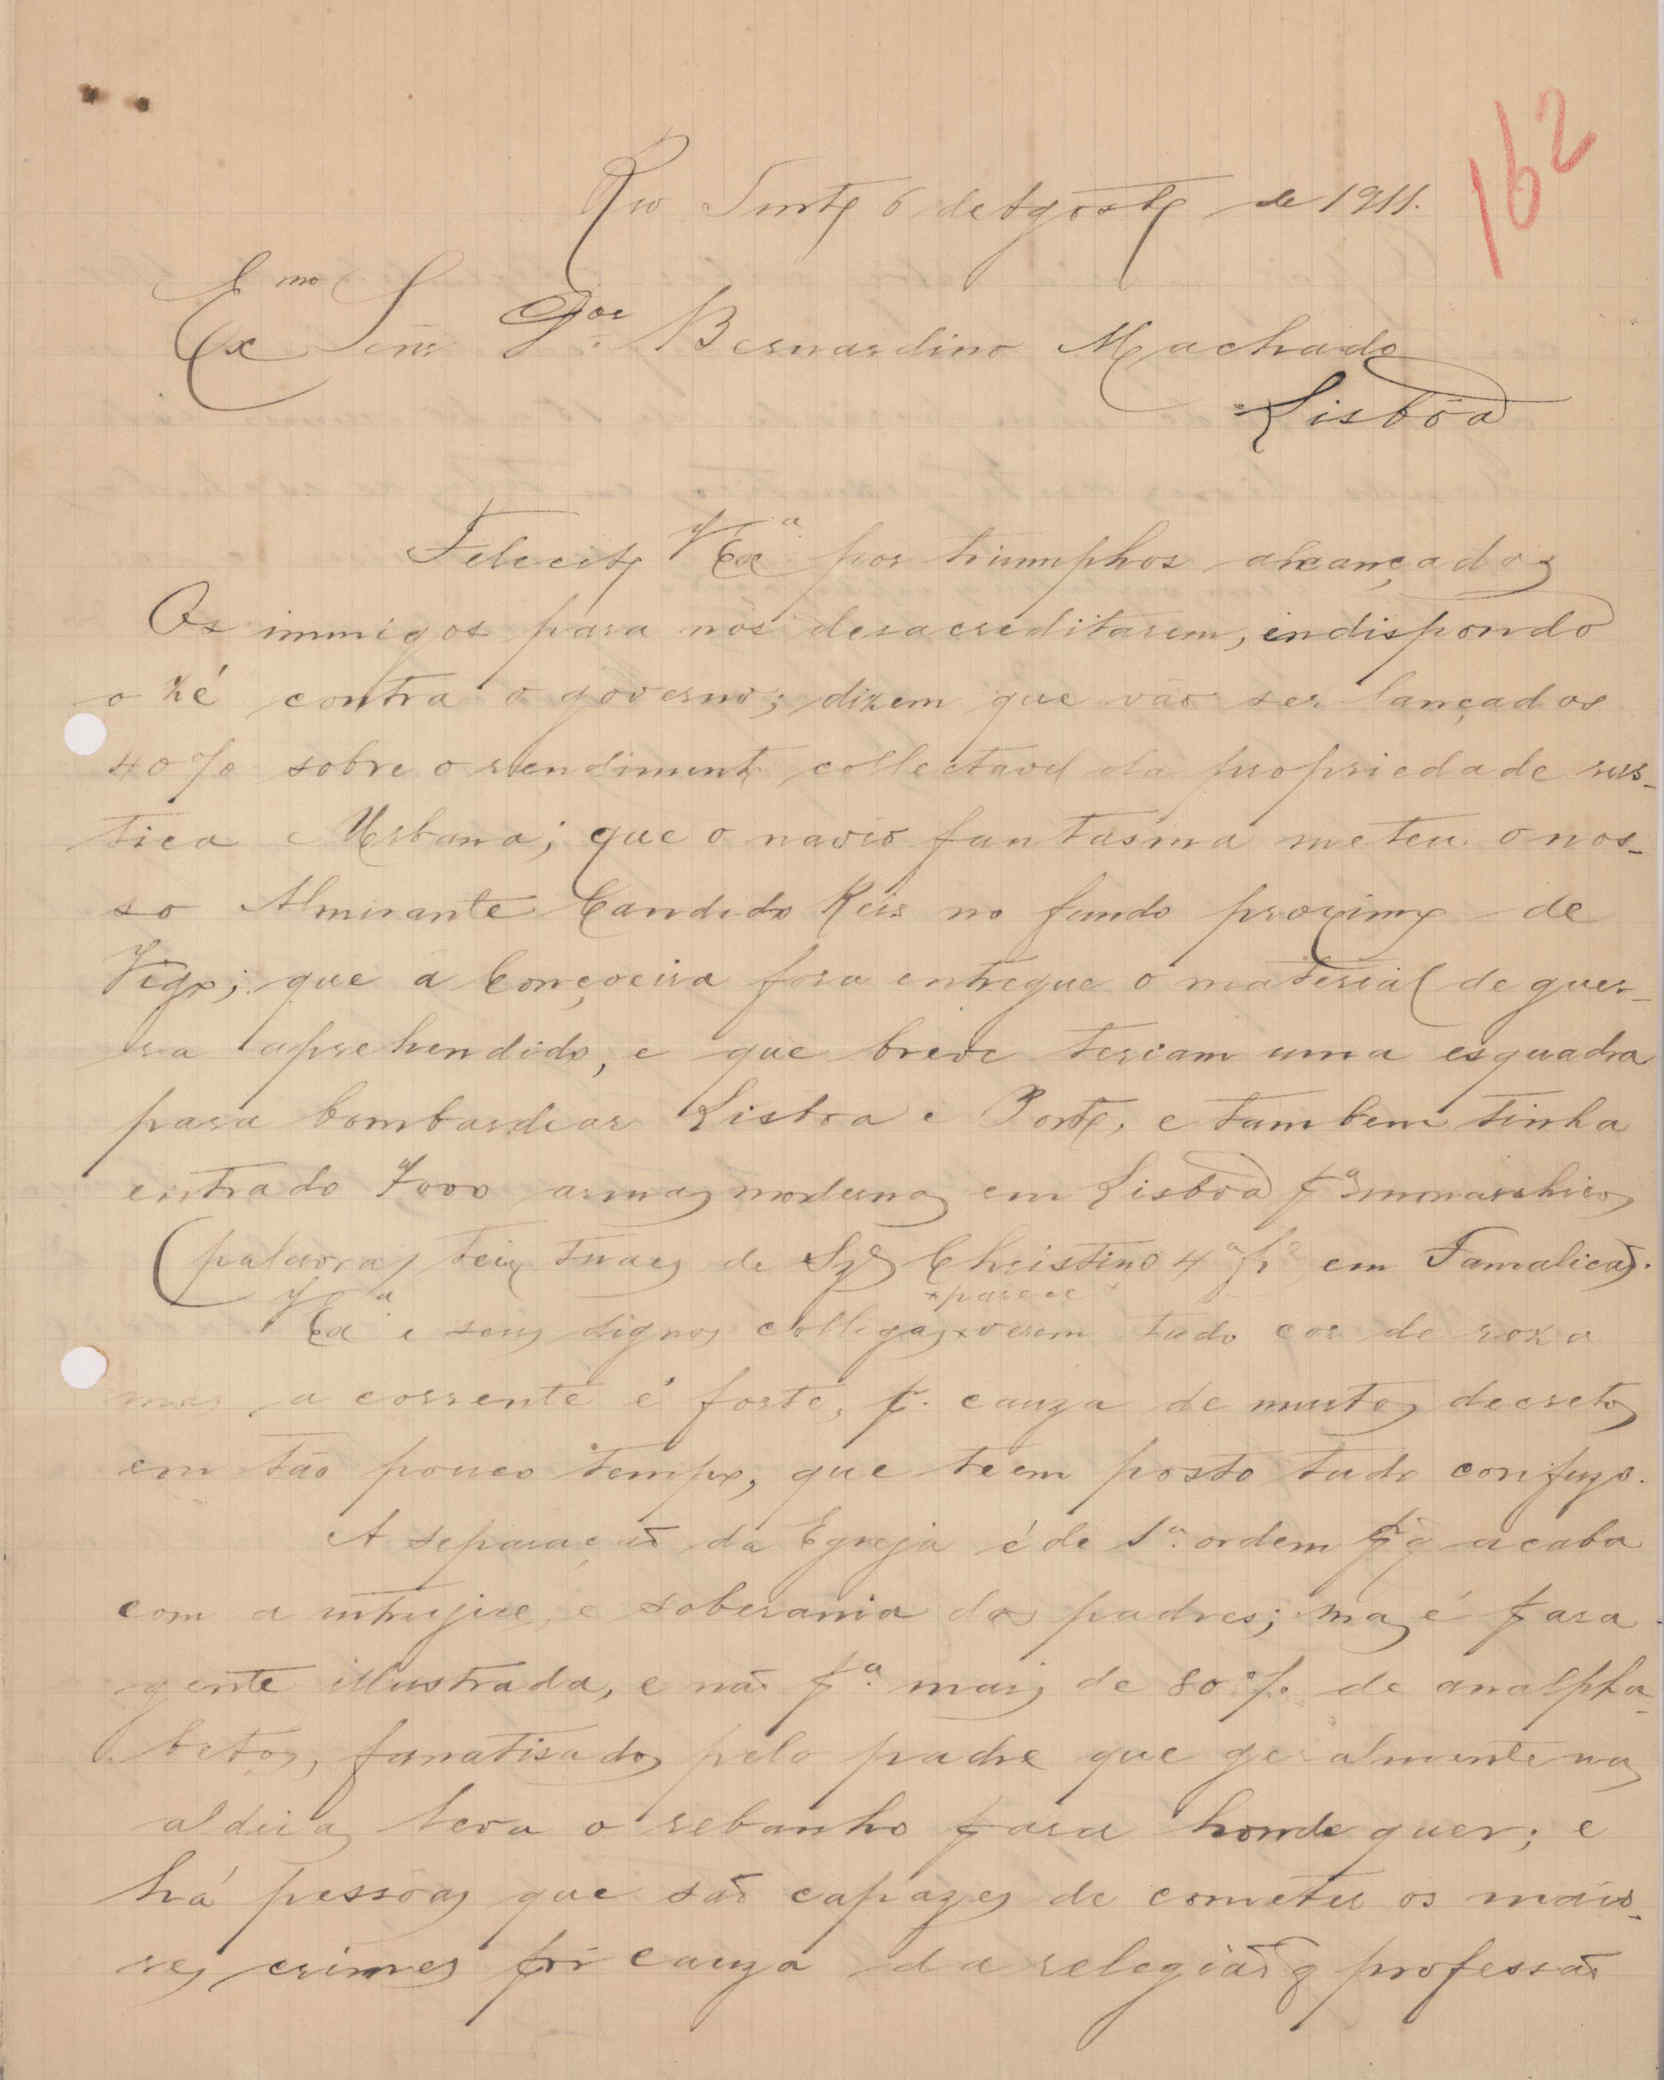 162
Rio Tinto 6 de Agosto de 1911.
Exmo Senr Dor Bernardino Machado
Lisbôa
Felecito VExa por triumphos alcançados
Os immigos para nós desacreditarem, indispondo
o Zé contra o governo; dizem que vão ser lançados
40% sobre o rendimento collectavel da propriedade rus-
tica e Urbana; que o navio fantasma meteu o nos-
so Almirante Candido Reis no fundo proximo de
Vigo; que a Conçoeira fora entregue o material de guer-
ra aprehendido, e que breve teriam uma esquadra
para bombardear Lisboa e Porto, e tambem tinha
entrado 7000 armas modernas em Lisbôa pa monarchicos
(palavras de Christino 4a fra em Famalicão).
VExa e seus dignos collegas parece verem tudo cor de roza
mas a corrente é forte, pr. cauza de muitos decretos
em tão pouco tempo, que teem posto tudo confuzo.
A separação da Egreja é de 1a. ordem pr q acaba
com a intrujice, e soberania dos padres; mas é para
gente illustrada, e não pa. mais de 80% de analpha-
betos, fanatisados pelo padre que geralmente nas
aldeias leva o rebanho para honde quer; e
há pessôas que são capazes de cometer os maio-
res crimes por cauza da relegião q professão